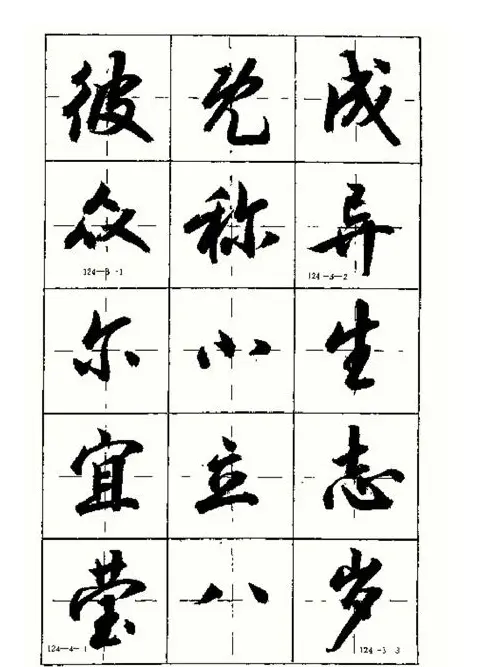 彼既成
众称异
124—3—1 124—3—2
尔小生
宜立志
莹八岁
124—4—1 124—3—3